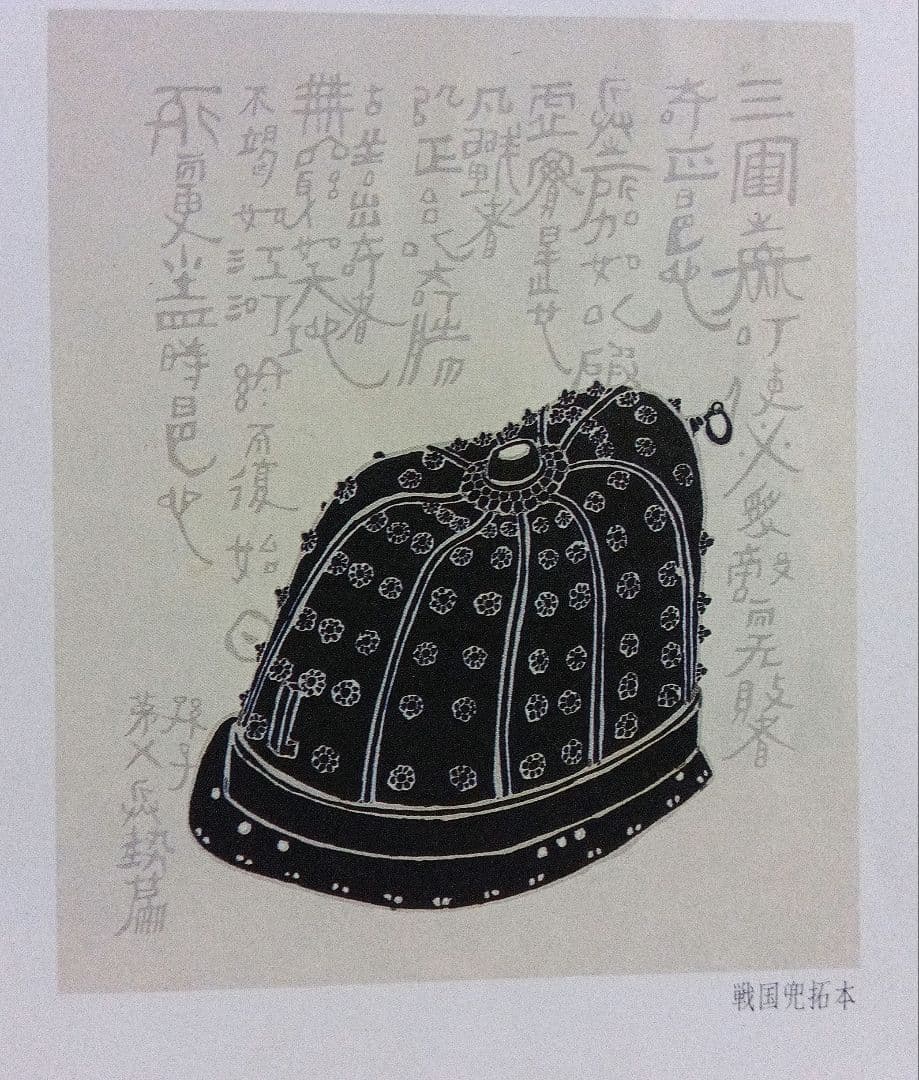 三軍之衆可使必受敵而无敗者
奇正是也
兵之所加如以碬
虛實是也
凡戰者
以正合以奇勝
古善出奇者
無窮如天地
不竭如江河終而復始日
死而更生四時是也
孫子
第五兵勢篇
戦国兜拓本